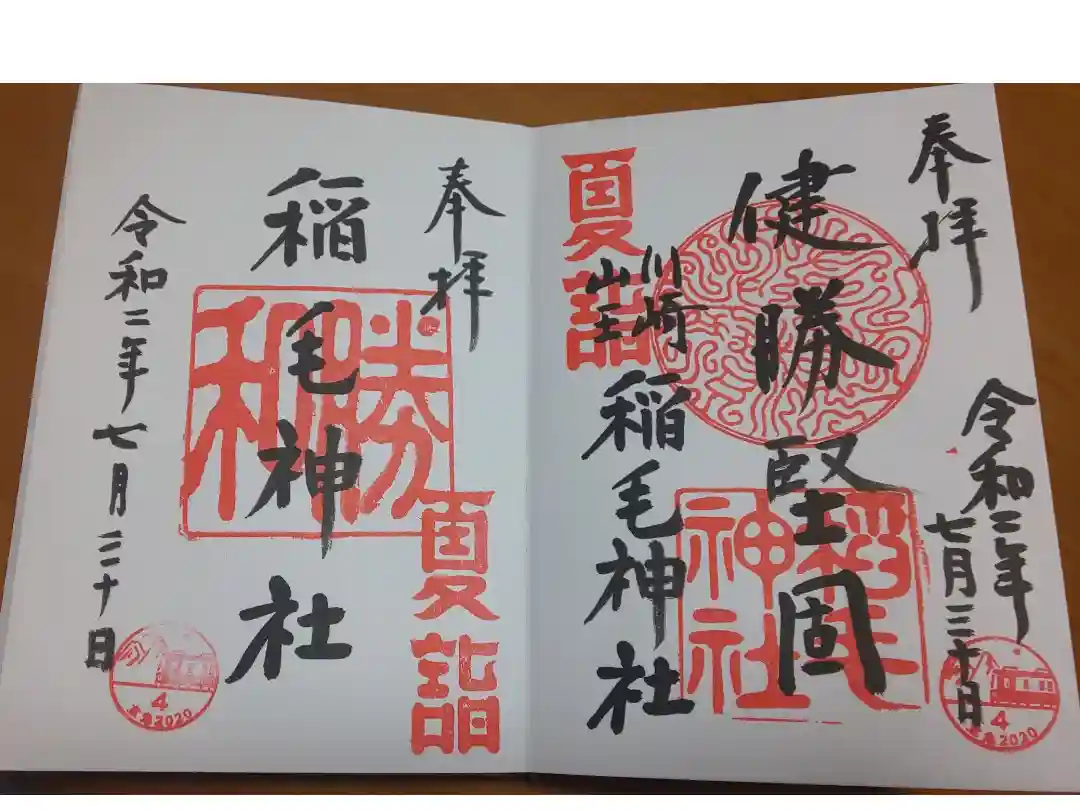 奉拝
令和二年
七月三十日
健勝堅固
夏詣
川崎
山王
稲毛神社
稲毛神社
4
京急2020
奉拝
稲毛神社
勝和
夏詣
令和二年七月三十日
4
京急2020